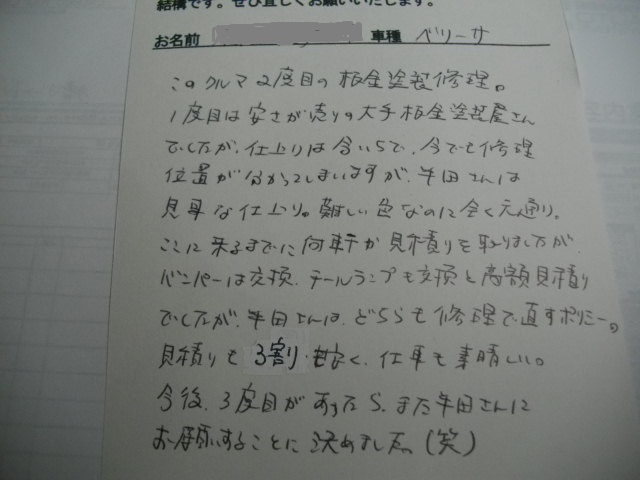 結構です。ぜひ宜しくお願いいたします。
お名前 車種 ベリーサ
このクルマ2度目の板金塗装修理。
1度目は安さが売りの大手板金塗装屋さん
でしたが、仕上りは今いちで、今でも修理
位置が分かってしまいますが、牛田さんは
見事な仕上り。難しい色なのに全く元通り。
ここに来るまでに何軒か見積りを取りましたが
バンパーは交換、テールランプも交換と高額見積り
でしたが、牛田さんは、どちらも修理で直すポリシー。
見積りも3割も安く、仕事も素晴しい。
今後、3度目があったら、また牛田さんに
お願いすることに決めました。(笑)